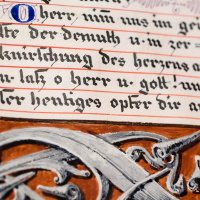 O herr nim uns im ge
ste der demutt u·in zer=
knirschung des herzens a
u·laß o herr u·gott! un
ser heutiges opfer dir a